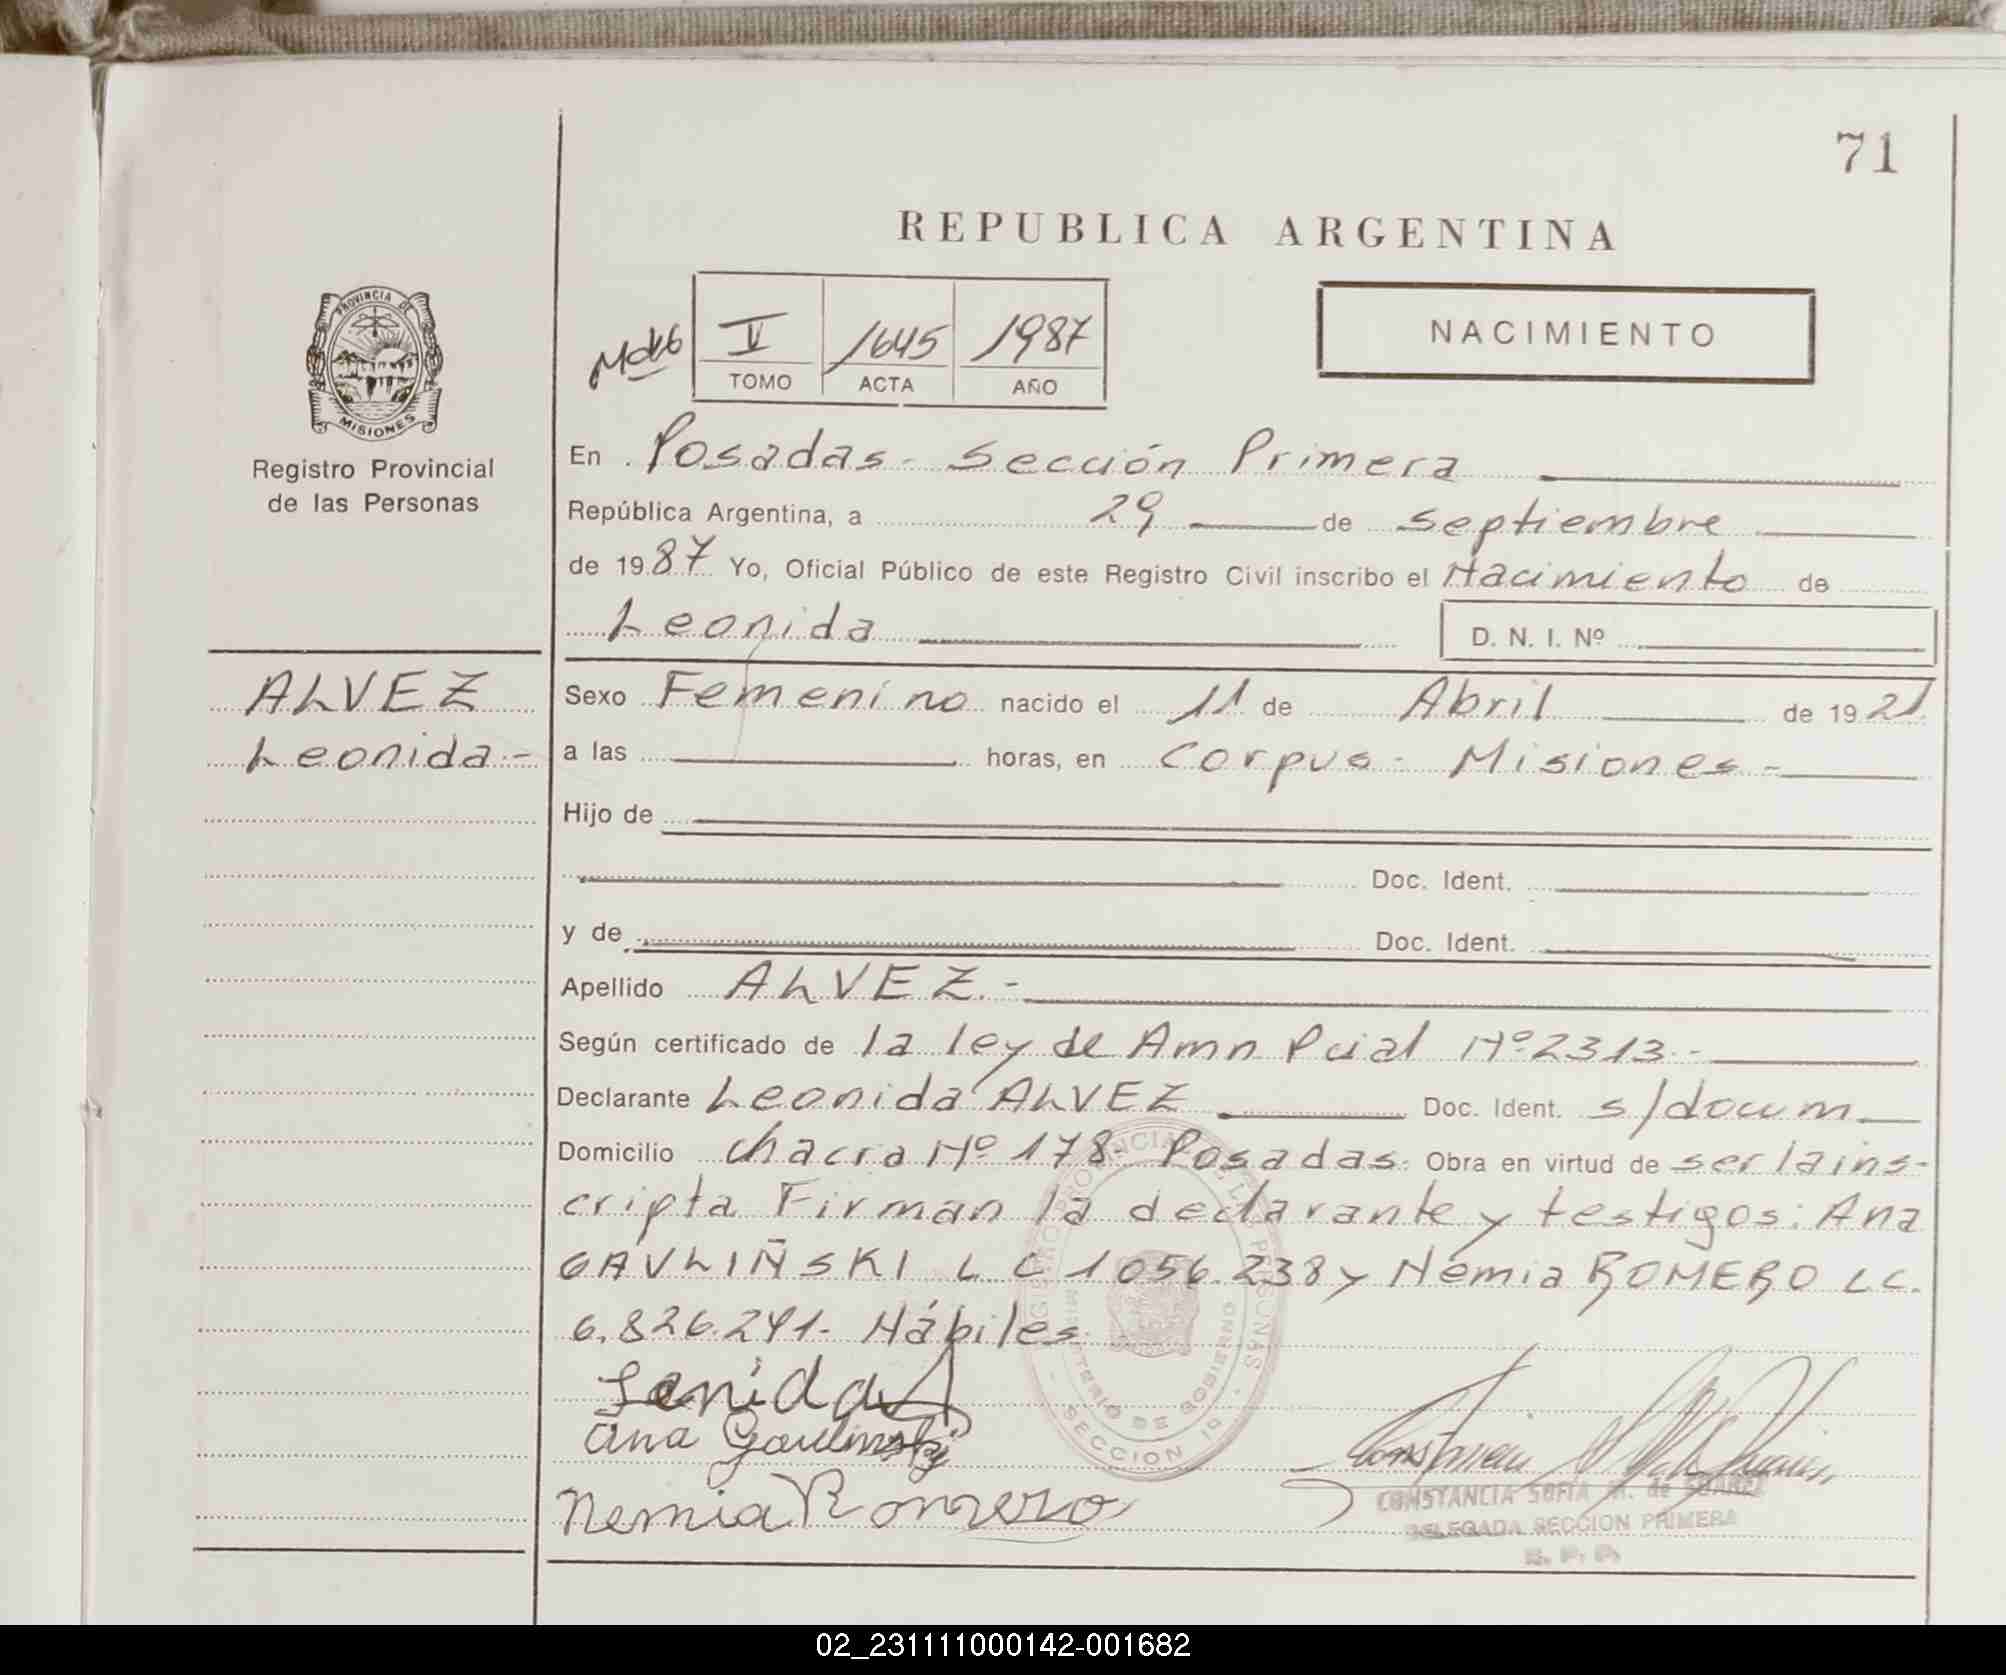 71
REPUBLICA ARGENTINA
PROVINCIA DE
MISIONES
Registro Provincial
de las Personas
V 1645 1987
TOMO ACTA AÑO
NACIMIENTO
En Posadas - Sección Primera
República Argentina, a 29 de Septiembre
de 1987 Yo, Oficial Público de este Registro Civil inscribo el Nacimiento de
Leonida D. N. I. Nº
ALVEZ
Leonida -
Sexo Femenino nacido el 11 de Abril de 1921
a las horas, en Corpus - Misiones -
Hijo de
Doc. Ident.
y de Doc. Ident.
Apellido ALVEZ. -
Según certificado de la ley de Amn Pcial Nº 2313. -
Declarante Leonida ALVEZ Doc. Ident. s/docum
Domicilio chacra Nº 178 - Posadas. Obra en virtud de ser la ins-
cripta Firman la declarante y testigos: Ana
GAVLIÑSKI L C 1056.238 y Némia ROMERO LC.
6.826.241. Hábiles
REGISTRO PROVINCIAL DE LAS PERSONAS
MINISTERIO DE GOBIERNO
SECCION 1º
Lenida A
Ana Gavlinski
Nemia Romero
CONSTANCIA SOFIA M. de SUAREZ
DELEGADA SECCION PRIMERA
R. P. P.
02_231111000142-001682